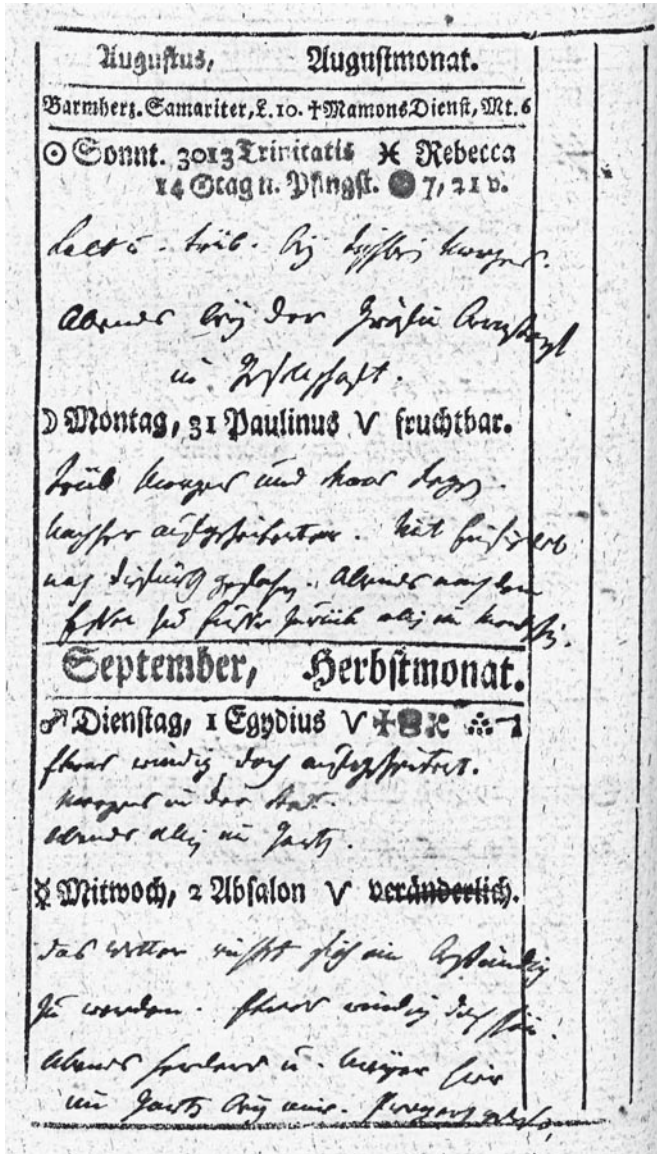 Augustus, Augustmonat.
Barmherz. Samariter, L. 10. † Mamons Dienst, Mt. 6
☉ Sonnt. 30 13 Trinitatis ♓ Rebecca
14 Stag n. Pfingst. 7, 21 v.
Kalt u. trüb. bey Morgens.
Abends bey der Gräfin
in Gesellschaft.
☽ Montag, 31 Paulinus ♈ fruchtbar.
trüb Morgens und
Nachher aufgeheiterter. Mit
nach gefahren. Abends nach dem
Essen zu Fuße zurück allein im
September, Herbstmonat.
♂ Dienstag, 1 Egydius ♈
Etwas windig doch aufgeheitert.
Morgens in der Stat.
Abends allein im Garten.
☿ Mitwoch, 2 Absalon ♈ veränderlich.
das Wetter sich ein beständig
zu werden. Etwas windig doch schön.
Abends Herders u. Meyer hier
im Garten bey mir.